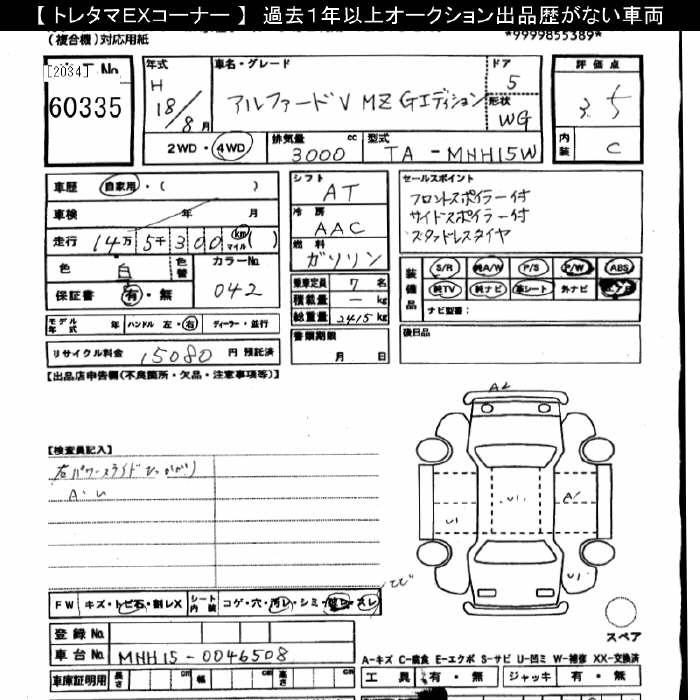 【 トレタマEXコーナー 】 過去1年以上オークション出品歴がない車両
(複合機)対応用紙
*9999855389*
[2034] No.
60335
年式
H
18/8月
車名・グレード
アルファードV MZ Gエディション
ドア
5
形状
WG
評価点
3.5
内装
C
2WD・4WD
排気量 3000 cc
型式 TA-MNH15W
車歴 自家用・( )
車検 年 月
走行 14万5千300 km マイル ( )
色 白 色替
カラーNo. 042
保証書 有・無
シフト
AT
冷房
AAC
燃料
ガソリン
乗車定員 7 名
積載量 ー kg
総重量 2415 kg
セールスポイント
フロントスポイラー付
サイドスポイラー付
スタッドレスタイヤ
装備品
S/R 純A/W P/S P/W ABS
純TV 純ナビ 革シート 外ナビ エアB
ナビ型番:
モデル年式 年 ハンドル 左・右 ディーラー・並行
リサイクル料金 15080 円 預託済
書類期限
月 日
後日品
【出品店申告欄(不良箇所・欠品・注意事項等)】
【検査員記入】
右パワースライドひっかかり
A・U
A2
U1
A1
U1
U1
FW キズ・トビ石・割レX
シート内装 コゲ・穴・汚レ・シミ・スレ
登録No.
車台No. MNH15-0046508
車庫証明用 長さ cm 幅 cm 高さ cm
スペア
A-キズ C-腐食 E-エクボ S-サビ U-凹ミ W-補修 XX-交換済
工具 有・無 ジャッキ 有・無